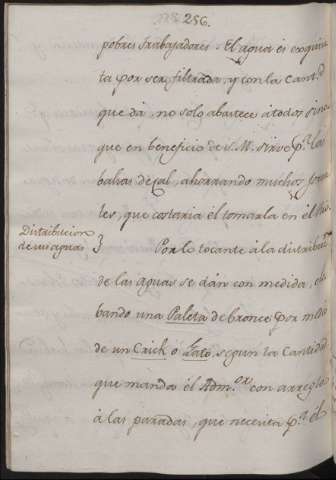 256.
pobres trabajadores. El agua es exquisi
ta por ser filtrada, y con la cant.d
que dà, no solo abastece à todos sino
que en beneficio de S. M. sirve p.a las
balsas de cal, ahorrando muchos jorna
les, que costaria el tomarla en el Rio.
Distribucion
de sus aguas }
Por lo tocante à la distribu.on
de las aguas se dán con medida, ele
bando una Paleta de bronce por medio
de un Crick ó Gato, segun la Cantidad
que manda el Adm.or con arreglo
à las paradas, que necesita p.a el